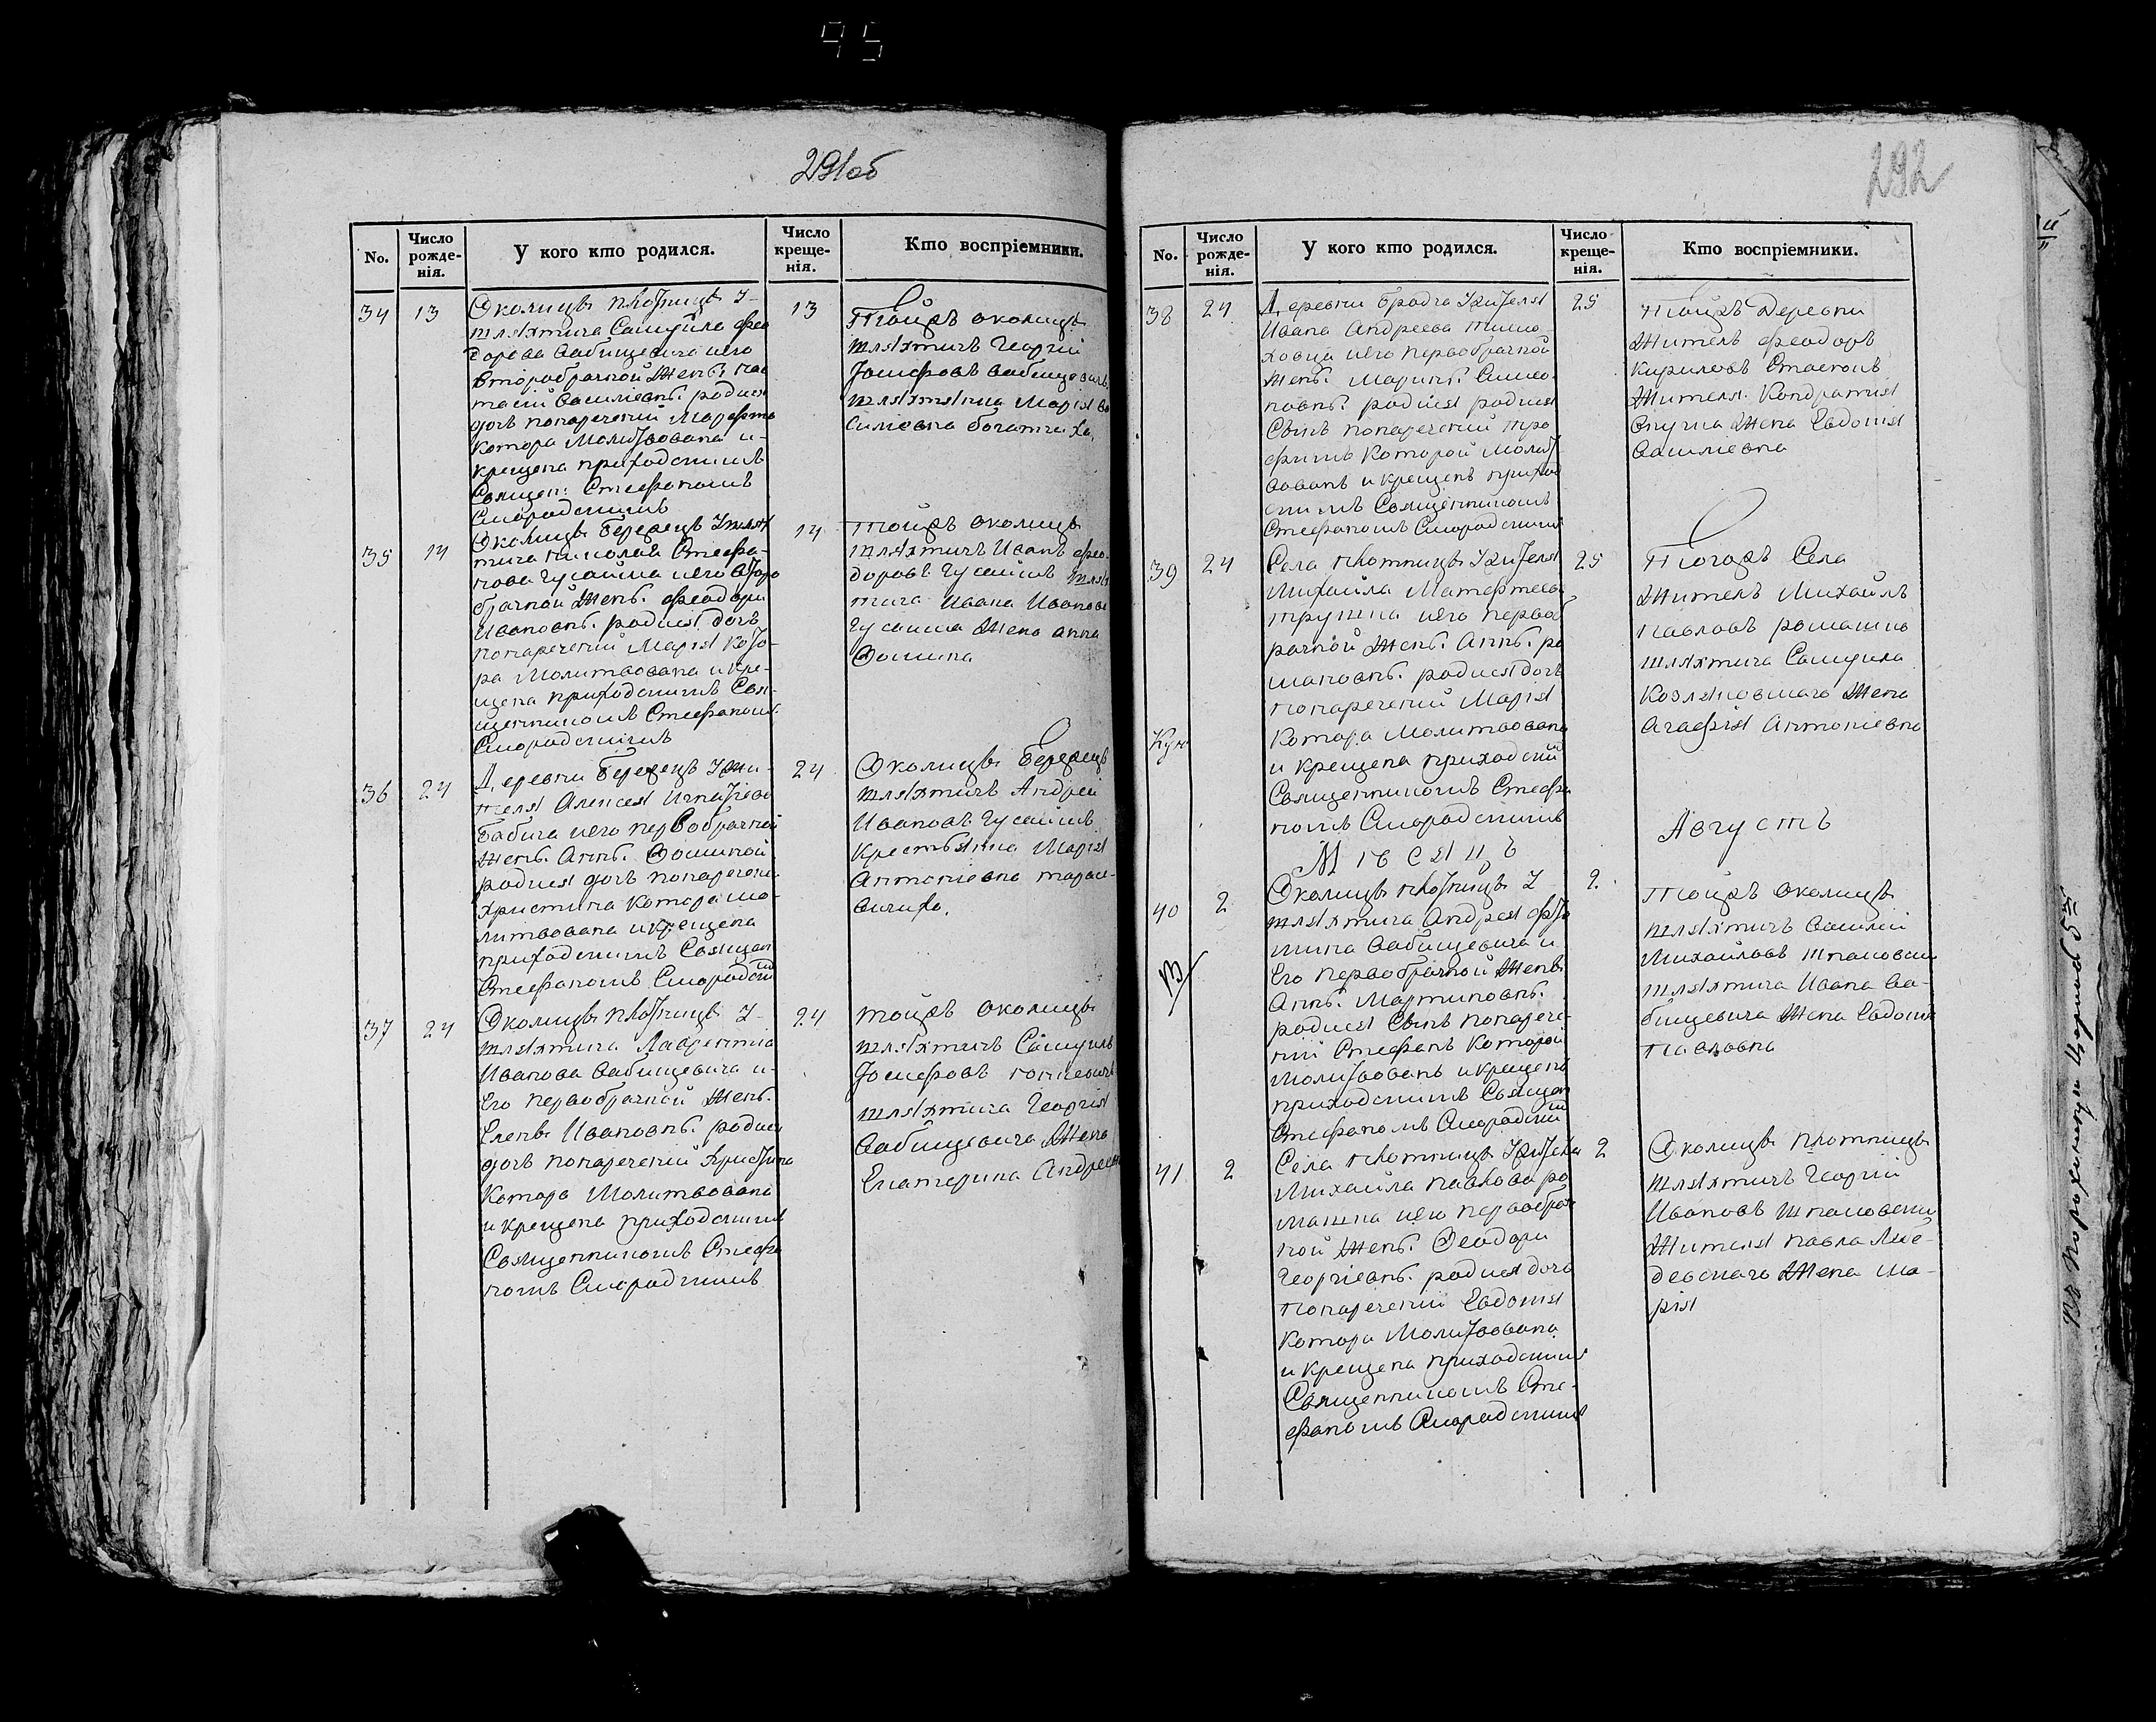 95
291об
No.
Число рожде-нія.
У кого кто родился.
Число креще-нія.
Кто воспріемники.
34 13
Околицѣ Плотницѣ
шляхтича Самуйла Фео
дорова Вабищевича и его
второбрачной Жены Нас
тасіи Василіевны родися
дочь нонареченій Марфта
котора Молитвована и
крещена приходскимъ
Священ: Стефаномъ
Смородскимъ
13
Тойжъ околицы
шляхтичъ Георгій
Іосифовъ Вабищевичъ
шляхтянка Марія Ва
силіевна
35 14
Околицѣ Бережцѣ Шлях
тича Николая Стефа-
нова Гусаима и его втеро
брачной Жены Феодори
Ивановны родися дочь
нонареченій Марія кото-
ра Молитвована и кре-
щена приходскимъ Свя-
щенникомъ Стефаномъ
Смородскимъ
14
Тойжъ околицы
шляхтичъ Иванъ Фео-
доровъ Гусаимъ шлях
тича Ивана Иванова
Гусаима Жена Анна
Фомина
36 24
Деревни Бережцѣ Жи-
теля Алексея Игнатіева
Бабича и его первобрачной
Жены Анны Фоминой
родися дочь нонаречени
Христина котора мо-
литвована и крещена
приходскимъ Священ
Стефаномъ Смородскій
24
Околицы Бережцѣ
шляхтичъ Андрей
Ивановъ Гусаимъ
Крестьянка Марія
Антоніевна
37 24
Околицѣ Плотницѣ
шляхтича Лаврентія
Иванова Вабищевича и
Его первобрачной Жены
Елены Ивановны родися
дочь нонареченій Христина
котора Молитвована
и крещена приходскимъ
Священникомъ Стефа
номъ Смородскимъ
24
тойжъ околицы
шляхтичъ Самуилъ
Іосифовъ
шляхтича Георгія
Вабищевича Жена
Екатерина Андреевн
292
No.
Число рожде-нія.
У кого кто родился.
Число креще-нія.
Кто воспріемники.
38 24
Деревни Бродча Жителя
Ивана Андреева Тимо-
ховца и его первобрачной
Жены Марины Симео-
новны родися родися
Сынъ нонареченій Тро
фимъ Которой молит
вованъ и крещенъ приход
скимъ Священникомъ
Стефаномъ Смородскимъ
25
Тойжъ Деревни
Житель Феодоръ
Кириловъ
Жителя Кондратия
Жена Евдокия
Василіевна
39 24
Села Плотницѣ Жителя
Михайла Матфтеева
и его первоб
рачной Жены Анны Ро
мановны родися дочь
Нонареченій Марія
Котора Молитвована
и крещена приходскій
Священникомъ Стефа
номъ Смородскимъ
25
Тогожъ Села
Житель Михайлъ
Павловъ Ромашко
шляхтича Самуила
Козляковшаго Жена
Агафія Антоніевна
Мѣсяцъ Августъ
40 2
Околицѣ Плотницѣ
шляхтича Андрея
Вабищевича и
Его первобрачной Жены
Анны Мартиновны
родися Сынъ нонарече-
ній Стефанъ Которой
Молитвованъ и крещенъ
приходскимъ Священ
Стефаномъ Смородскій
2
Тойжъ околицы
шляхтичъ Василій
Михайловъ Шпаковскій
шляхтича Ивана Ва-
бищевича Жена Евдокія
Павловна
41 2
Села Плотницѣ Жителя
Михайла Павлова Ро
машка и его первобрач
ной Жены Феодори
Георгіевны родися дочь
Нонареченій Евдокия
Котора Молитвована
и крещена приходскимъ
Священникомъ Сте-
фаномъ Смородскимъ
2
Околицы Плотницы
шляхтичъ Георгій
Ивановъ Шпаковскій
Жителя Павла Лебе-
девскаго Жена Ма-
рія